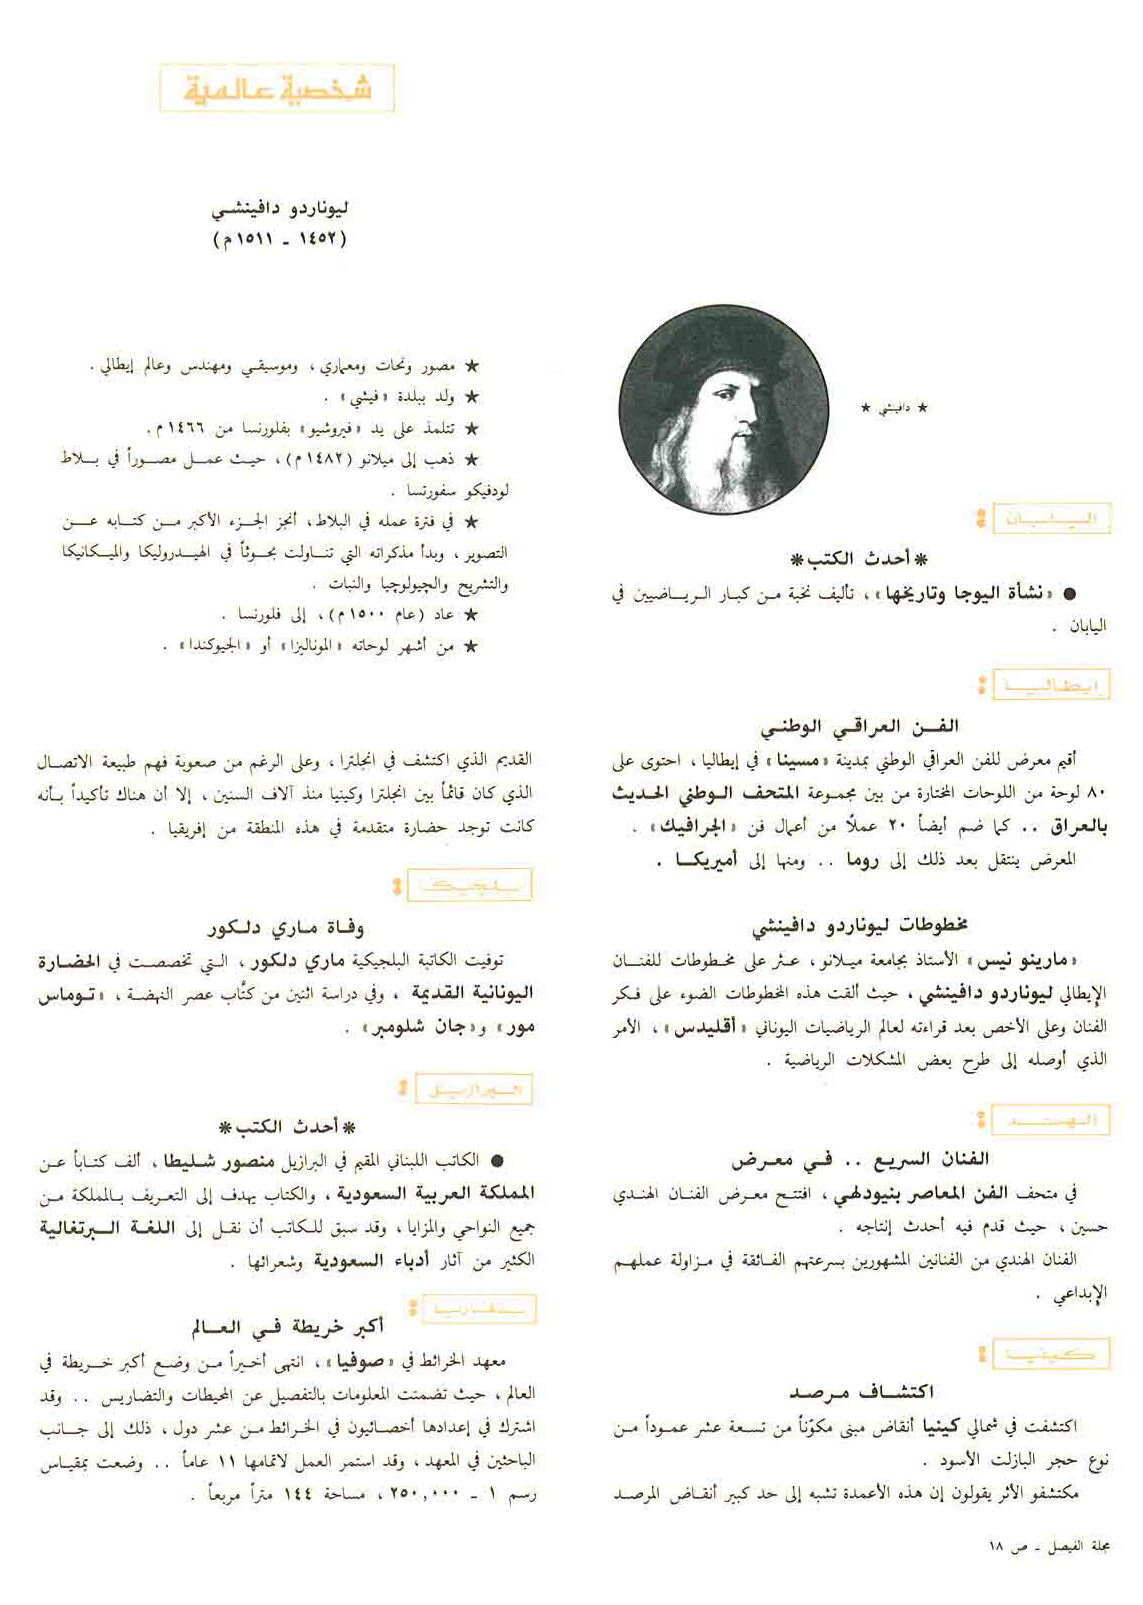 شخصية عالمية
ليوناردو دافينشي
(١٤٥٢ ـ ١٥١١ م)
★ مصور ونحات ومعماري ، وموسيقي ومهندس وعالم إيطالي .
★ ولد ببلدة «فيشي» .
★ تتلمذ على يد «فيروشيو» بفلورنسا من ١٤٦٦ م .
★ ذهب إلى ميلانو (١٤٨٢ م) ، حيث عمل مصوراً في بلاط
لودفيكو سفورتسا .
★ في فترة عمله في البلاط ، أنجز الجزء الأكبر من كتابه عن
التصوير ، وبدأ مذكراته التي تناولت بحوثاً في الهيدروليكا والميكانيكا
والتشريح والچيولوچيا والنبات .
★ عاد (عام ١٥٠٠ م) ، إلى فلورنسا .
★ من أشهر لوحاته «الموناليزا» أو «الجيوكندا» .
★ دافينشي ★
اليابان :
*أحدث الكتب*
● «نشأة اليوجا وتاريخها» ، تأليف نخبة من كبار الرياضيين في
اليابان .
إيطاليا :
الفن العراقي الوطني
أقيم معرض للفن العراقي الوطني بمدينة «مسينا» في إيطاليا ، احتوى على
٨٠ لوحة من اللوحات المختارة من بين مجموعة المتحف الوطني الحديث
بالعراق .. كما ضم أيضاً ٢٠ عملًا من أعمال فن «الجرافيك» .
المعرض ينتقل بعد ذلك إلى روما .. ومنها إلى أميريكا .
مخطوطات ليوناردو دافينشي
«مارينو نيس» الأستاذ بجامعة ميلانو ، عثر على مخطوطات للفنان
الإيطالي ليوناردو دافينشي ، حيث ألقت هذه المخطوطات الضوء على فكر
الفنان وعلى الأخص بعد قراءته لعالم الرياضيات اليوناني «أقليدس» ، الأمر
الذي أوصله إلى طرح بعض المشكلات الرياضية .
الهند :
الفنان السريع .. في معرض
في متحف الفن المعاصر بنيودلهي ، افتتح معرض الفنان الهندي
حسين ، حيث قدم فيه أحدث إنتاجه .
الفنان الهندي من الفنانين المشهورين بسرعتهم الفائقة في مزاولة عملهم
الإبداعي .
كينيا :
اكتشاف مرصد
اكتشفت في شمالي كينيا أنقاض مبنى مكوّناً من تسعة عشر عموداً من
نوع حجر البازلت الأسود .
مكتشفو الأثر يقولون إن هذه الأعمدة تشبه إلى حد كبير أنقاض المرصد
القديم الذي اكتشف في انجلترا ، وعلى الرغم من صعوبة فهم طبيعة الاتصال
الذي كان قائماً بين انجلترا وكينيا منذ آلاف السنين ، إلا أن هناك تأكيداً بأنه
كانت توجد حضارة متقدمة في هذه المنطقة من إفريقيا .
بلجيكا :
وفاة ماري دلكور
توفيت الكاتبة البلجيكية ماري دلكور ، التي تخصصت في الحضارة
اليونانية القديمة ، وفي دراسة اثنين من كتَّاب عصر النهضة ، «توماس
مور» و«جان شلومبر» .
البرازيل :
*أحدث الكتب*
● الكاتب اللبناني المقيم في البرازيل منصور شليطا ، ألف كتاباً عن
المملكة العربية السعودية ، والكتاب يهدف إلى التعريف بالمملكة من
جميع النواحي والمزايا ، وقد سبق للكاتب أن نقل إلى اللغة البرتغالية
الكثير من آثار أدباء السعودية وشعرائها .
بلغاريا :
أكبر خريطة في العالم
معهد الخرائط في «صوفيا» ، انتهى أخيراً من وضع أكبر خريطة في
العالم ، حيث تضمنت المعلومات بالتفصيل عن المحيطات والتضاريس .. وقد
اشترك في إعدادها أخصائيون في الخرائط من عشر دول ، ذلك إلى جانب
الباحثين في المعهد ، وقد استمر العمل لاتمامها ١١ عاماً .. وضعت بمقياس
رسم ١ ـ ٢٥٠,٠٠٠ ، مساحة ١٤٤ متراً مربعاً .
مجلة الفيصل ـ ص ١٨